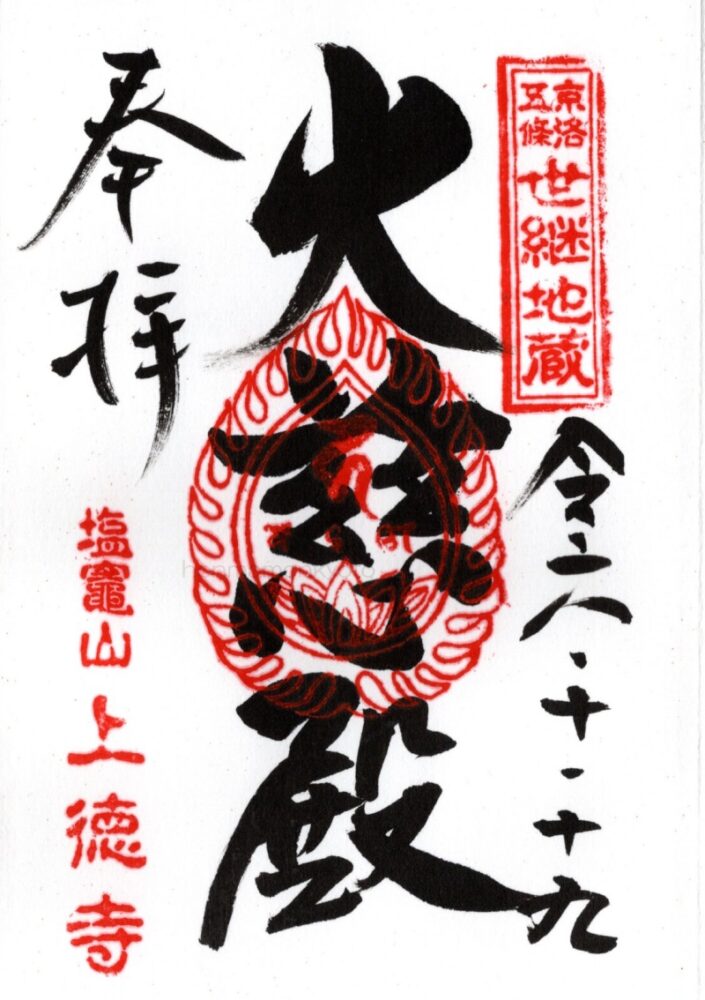 京洛
五條
世継地蔵
令六・十・十九
大慈殿
奉拝
塩竈山上徳寺